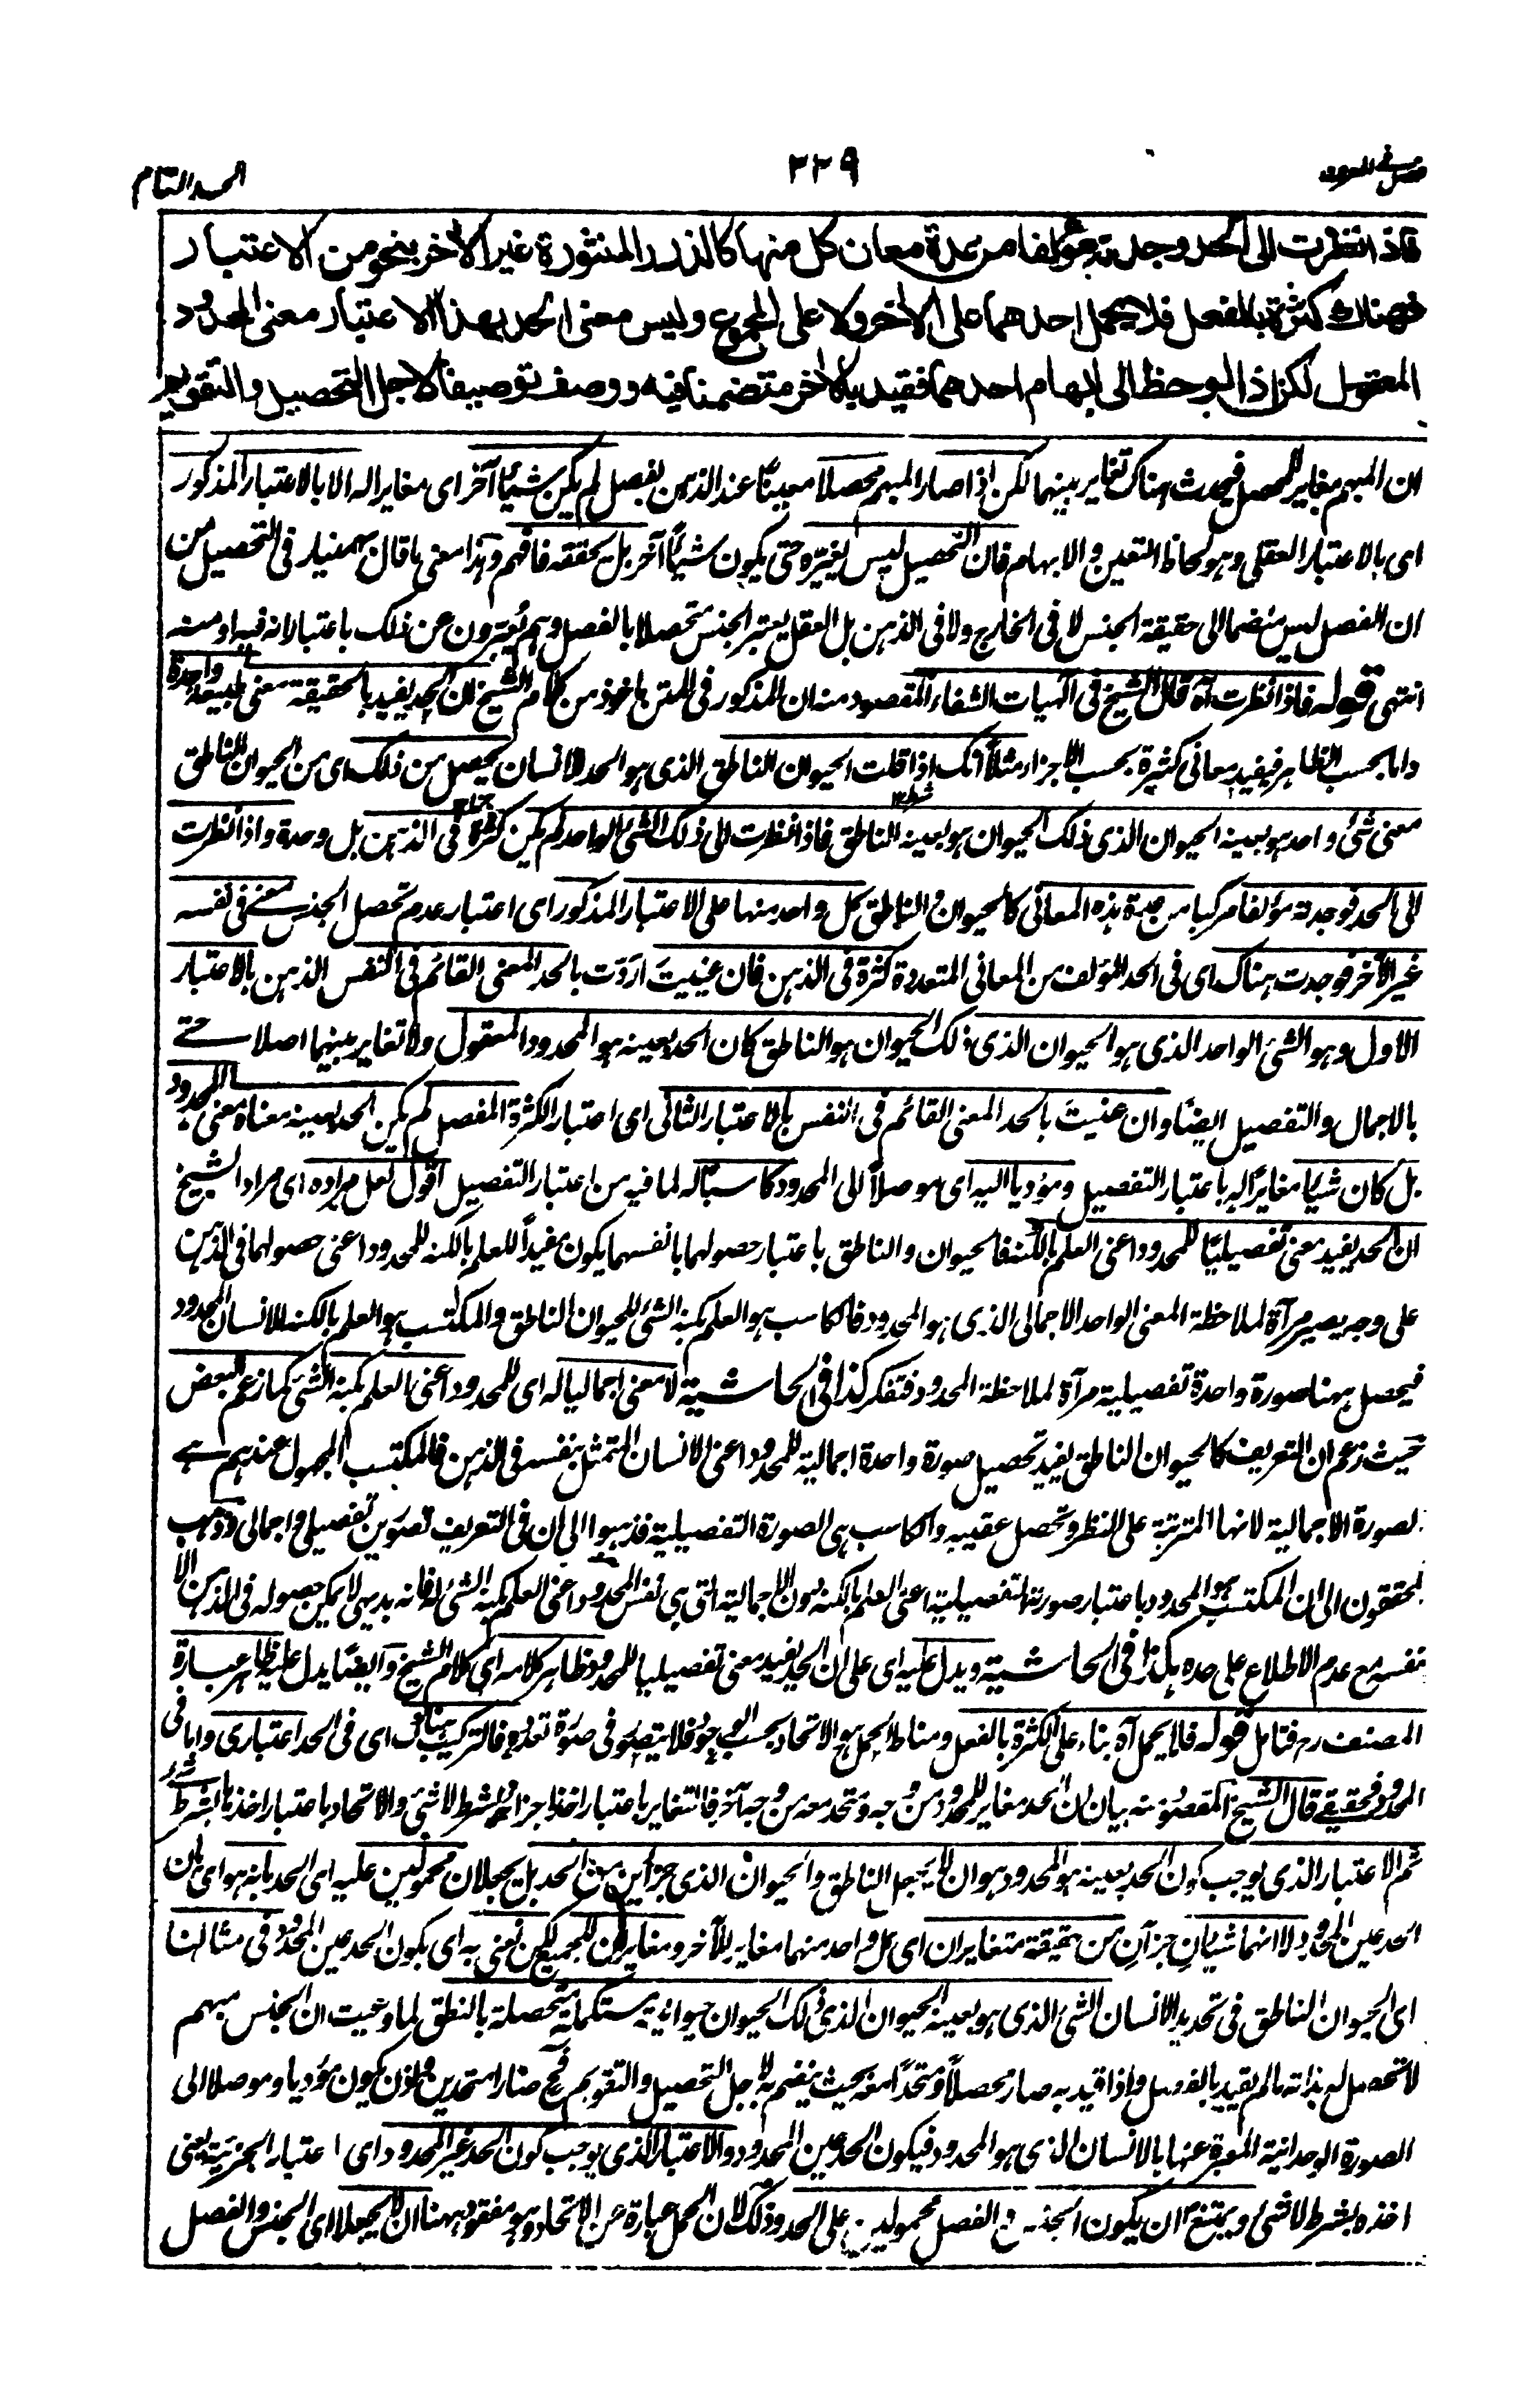 فصل فى المعرف
٣٣٩
الحد التام
فاذا نظرت الى الحد وجدته مؤلفا من عدة معان كل منها كالدرر المنثورة غير الأخر بنحو من الاعتبار
فهناك كثرة بالفعل فلا يحمل احدهما على الأخر ولا على المجموع وليس معنى الحد بهذا الاعتبار معنى المحدود
المعقول لكن اذا لوحظ الى ابهام احدهما فقيد بالأخر متضمنا فيه ووصف توصيفا لاجل التحصيل والتقويم
ان المبهم مغاير للمحصل فيحدث هناك تغاير بينهما لكن اذا صار المبهم محصلا معينًا عند الذهن بفصل لم يكن شيئًا آخر اى مغايرا له الا بالاعتبار المذكور
اى بالاعتبار العقلى وهو لحاظ التعين والابهام فان التحصيل ليس يغيّره حتى يكون شيئًا آخر بل يحققه فافهم وهذا معنى ما قال بهمنيار فى التحصيل من
ان الفصل ليس منضما الى حقيقة الجنس لا فى الخارج ولا فى الذهن بل العقل يعتبر الجنس متحصلا بالفصل وهم يُعبّرون عن ذلك باعتبار انه فيه او منه
انتهى قوله فاذا نظرت آه قال الشيخ فى الٓهيات الشفاء المقصود منه ان المذكور فى المتن ماخوذ من كلام الشيخ ان الحد يفيد بالحقيقة معنى طبيعة واحدة
واما بحسب الظاهر فيفيد معانى كثيرة بحسب الاجزاء مثلًا انك اذا قلت الحيوان الناطق الذى هو الحد للانسان يحصل من ذلك اى من الحيوان الناطق
معنى شئ واحد هو بعينه الحيوان الذى ذلك الحيوان هو بعينه الناطق فاذا نظرت الى ذلك الشئ الواحد لم يكن كثرة فى الذهن بل وحدة واذا نظرت
الى الحد فوجدته مؤلفا مركبا من عدة هذه المعانى كالحيوان والناطق كل واحد منها على الاعتبار المذكور اى اعتبار عدم تحصل الجنس معنى فى نفسه
غير الآخر فوجدت هناك اى فى الحد المؤلف من المعانى المتعددة كثرة فى الذهن فان عنيتَ اردت بالحد المعنى القائم فى النفس الذهن بالاعتبار
الاول وهو الشئ الواحد الذى هو الحيوان الذى ذلك الحيوان هو الناطق كان الحد بعينه هو المحدود المعقول ولا تغاير بينهما اصلا حتى
بالاجمال والتفصيل ايضًا وان عنيتَ بالحد المعنى القائم فى النفس بالاعتبار الثانى اى اعتبار الكثرة المفصل لم يكن الحد بعينه معناه معنى المحدود
بل كان شيئا مغايرًا له باعتبار التفصيل ومؤديا اليه اى موصلًا الى المحدود كاسبًا له لما فيه من اعتبار التفصيل اقول لعل مراده اى مراد الشيخ
ان الحد يفيد معنى تفصيليًا للمحدود اعنى العلم بالكنه فالحيوان والناطق باعتبار حصولهما بانفسهما يكون مفيدًا للعلم بالكنه للمحدود اعنى حصولهما فى الذهن
على وجه يصير مرآة لملاحظة المعنى الواحد الاجمالى الذى هو المحدود فالكاسب هو العلم بكنه الشئ للحيوان الناطق والمكتسب هو العلم بالكنه للانسان المحدود
فيحصل ههنا صورة واحدة تفصيلية مرآة لملاحظة المحدود فتفكر كذا فى الحاشية لا معنى اجماليا له اى للمحدود اعنى العلم بكنه الشئ كما زعم البعض
حيث زعم ان التعريف كالحيوان الناطق يفيد تحصيل صورة واحدة اجمالية للمحدود اعنى الانسان المتمثل بنفسه فى الذهن فالمكتسب المجهول عندهم هى
الصورة الاجمالية لانها المترتبة على النظر وتحصل عقيبه والكاسب هى الصورة التفصيلية فذهبوا الى ان فى التعريف تصورين تفصيلى واجمالى وذهب
المحققون الى ان المكتسب هو المحدود باعتبار صورته التفصيلية اعنى العلم بالكنه دون الاجمالية التى هى نفس المحدود اعنى العلم بكنه الشئ فانه بديهى لا يمكن حصوله فى الذهن الا
بنفسه مع عدم الاطلاع على حده هكذا فى الحاشية ويدل عليه اى على ان الحد يفيد معنى تفصيليا للمحدود ظاهر كلامه اى كلام الشيخ وايضًا يدل عليه ظاهر عبارة
المصنف رم فتامل قوله فلا يحمل آه بناء على الكثرة بالفعل ومناط الحمل هو الاتحاد بحسب الوجود فلا يتصور فى صورة تعدده فالتركيب هناك اى فى الحد اعتبارى واما فى
المحدود فحقيقى قال الشيخ المقصود منه بيان ان الحد مغاير للمحدود من وجه ومتحد معه من وجه آخر فالتغاير باعتبار اخذ اجزائه بشرط لا شئ والاتحاد باعتبار اخذها لا بشرط شئ
ثم الاعتبار الذى يوجب كون الحد بعينه هو المحدود هو ان لا يجعل الناطق والحيوان الذى جزأين من الحد بل يجعلان محمولين عليه اى الحد بانه هو اى بان
الحد عين المحدود لا انهما شيئان جزآن من حقيقة متغايران اى كل واحد منهما مغاير للآخر ومغايران للمجموع لكن نعنى به اى بكون الحد عين المحدود فى مثالنا
اى الحيوان الناطق فى تحديد الانسان الشئ الذى هو بعينه الحيوان الذى ذلك الحيوان حيوانيته مستكملة متحصلة بالنطق لما وعيت ان الجنس مبهم
لا تحصل له بذاته ما لم يقيد بالفصل واذا قيد به صار محصلًا ومتحدًا معه بحيث ينضم به لاجل التحصيل والتقويم فح صارا متحدين فاذن يكون مؤديا وموصلا الى
الصورة الوحدانية المعبرة عنها بالانسان الذى هو المحدود فيكون الحد عين المحدود والاعتبار الذى يوجب كون الحد غير المحدود اى اعتبار الجزئية يعنى
اخذه بشرط لا شئ ويمتنع ان يكون الجنس والفصل محمولين على الحد وذلك لان الحمل عبارة عن الاتحاد وهو مفقود ههنا ان لا يجعلا اى الجنس والفصل